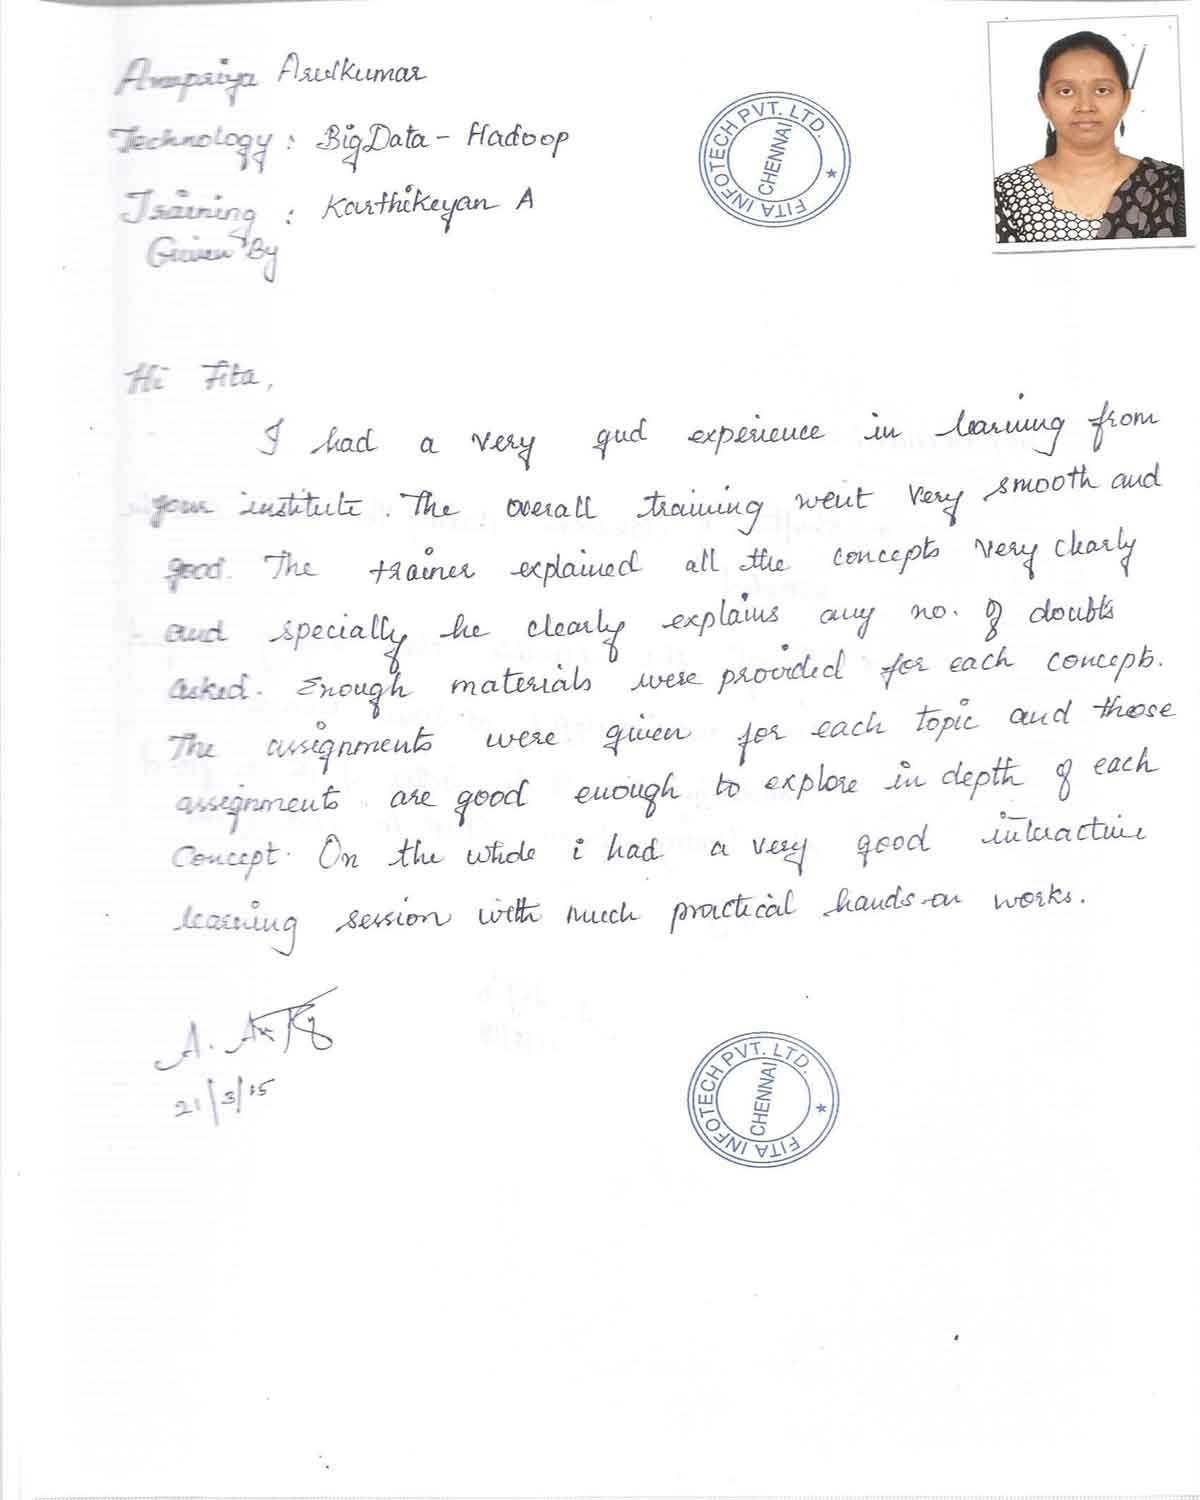 Arulkumar
Technology : BigData - Hadoop
Training : Karthikeyan A
Given By
FITA INFOTECH PVT. LTD.
CHENNAI
Hi Fita,
I had a very gud experience in learning from
your institute. The overall training went very smooth and
good. The trainer explained all the concepts very clearly
and specially he clearly explains any no. of doubts
asked. Enough materials were provided for each concepts.
The assignments were given for each topic and those
assignments are good enough to explore in depth of each
concept. On the whole i had a very good interactive
learning session with much practical hands-on works.
21/3/15
FITA INFOTECH PVT. LTD.
CHENNAI